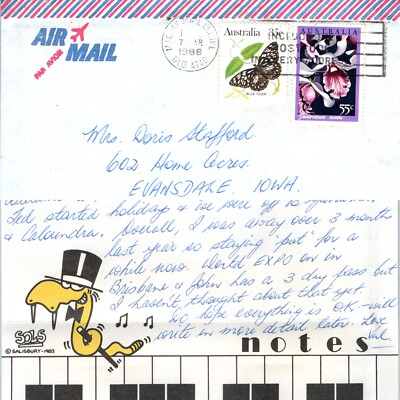 AIR MAIL
PAR AVION
7 1988
QLD 4740
Australia
BLUE TIGER
AUSTRALIA
55c
Mrs. Doris Stafford.
602 Home Acres.
EVANSDALE. IOWA.
Ted started holiday & we were off to
& Caloundra. Overall, I was away over 3 months
last year so staying "put" for a
while now. World EXPO on in
Brisbane & John has a 3 day pass but
I haven't thought about that yet.
So hope everything is OK - will
write in more detail later. Love
SOLS
© SALISBURY-1983
notes